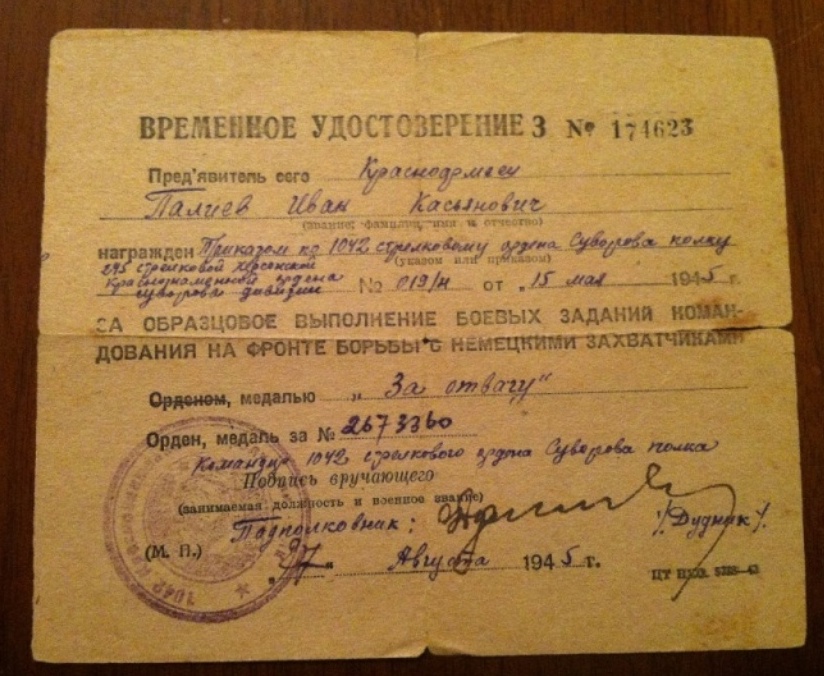 ВРЕМЕННОЕ УДОСТОВЕРЕНИЕ З № 174623
Пред'явитель сего Красноармеец
Палиев Иван Касьянович
(звание, фамилия, имя и отчество)
награжден Приказом по 1042 стрелковому ордена Суворова полку
(указом или приказом)
245 стрелковой Херсонской
Краснознаменной ордена
Суворова дивизии № 019/н от „15 мая 1945 г.
ЗА ОБРАЗЦОВОЕ ВЫПОЛНЕНИЕ БОЕВЫХ ЗАДАНИЙ КОМАН-
ДОВАНИЯ НА ФРОНТЕ БОРЬБЫ С НЕМЕЦКИМИ ЗАХВАТЧИКАМИ
Орденом, медалью „За отвагу"
Орден, медаль за № 2673360
Командир 1042 стрелкового ордена Суворова полка
Подпись вручающего
(занимаемая должность и военное звание)
Подполковник: /Дудник/.
(М. П.)
„27" Августа 1945 г.
1042